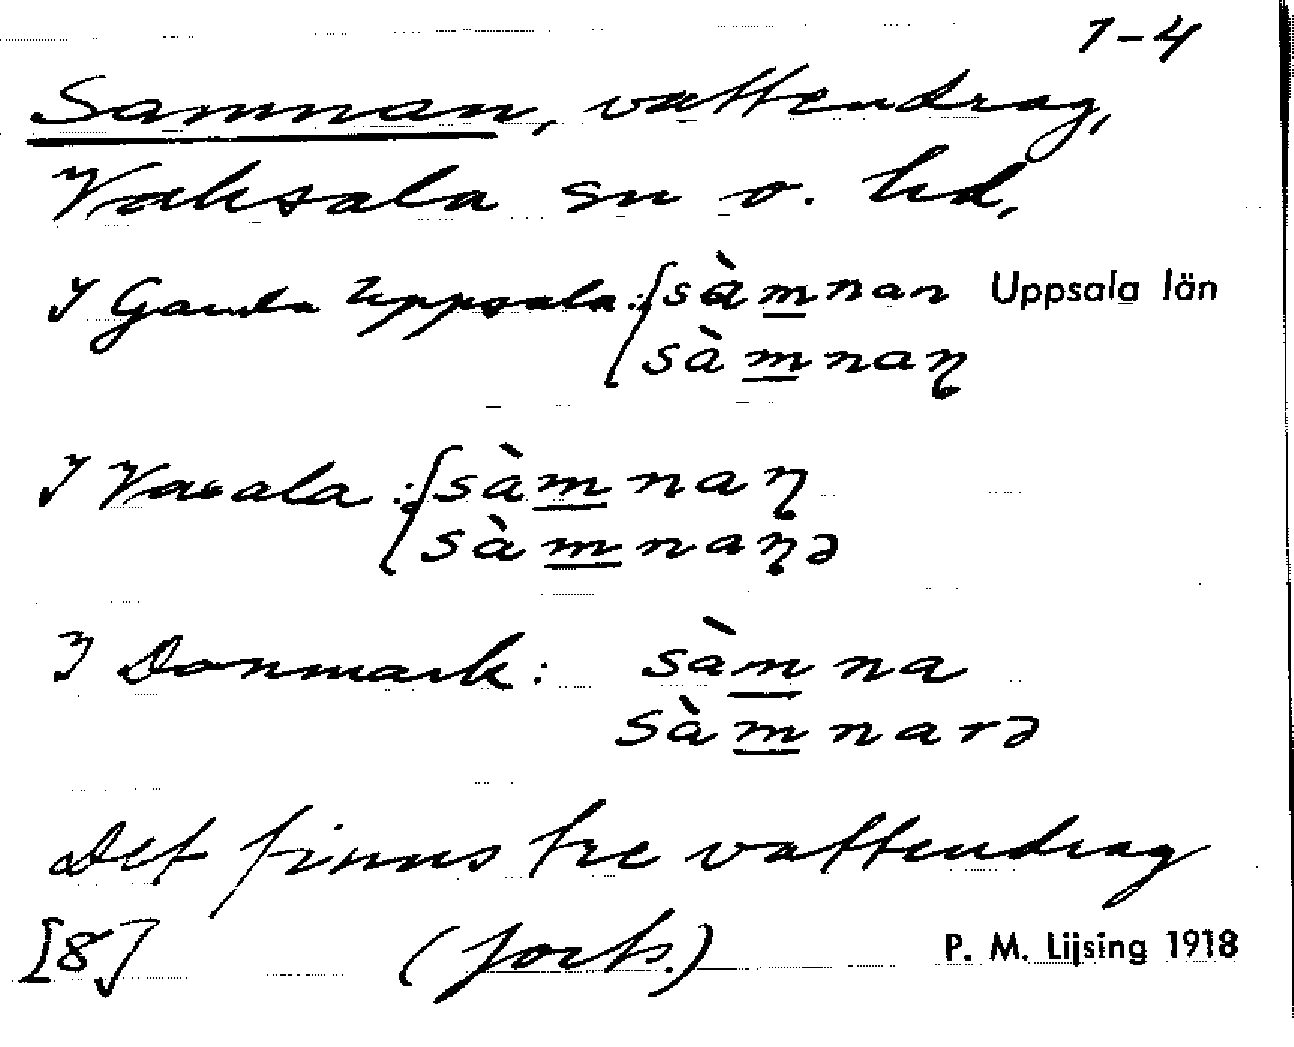 1-4
Samnan, vattendrag,
Vaksala sn o. hd,
I Gamla Uppsala: sàm̲nan Uppsala län
sàm̲naɳ
I Vasala: sàm̲naɳ
sàm̲naɳə
I Danmark: sàm̲na
sàm̲narə
Det finns tre vattendrag
[8] (forts.) P. M. Lijsing 1918